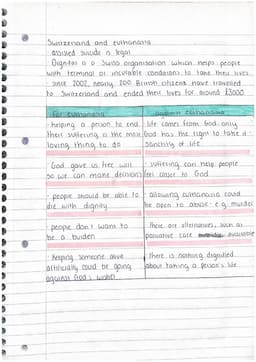 Switzerland and euthanasia
assisted suicide is legal
Dignitas is a Swiss organisation which helps people
with terminal or incurable conditions to take their lives.
since 2002, nearly 200 British citizens have travelled
to Switzerland and ended their lives for around £3000.
For euthanasia
against euthanasia
helping a person to end
their suffering is the most
loving thing to do
life comes from God. only
God has the right to take it
sanctity of life
God gave us free will
so we can make decisions
suffering can help people
feel closer to God
people should be able to
die with dignity
allowing euthanasia could
be open to abuse e.g. murder
people don't want to
be a burden
there are alternatives, such as
palliative care available
keeping someone alive
artificially could be going
against God's wishes
there is nothing dignified
about taking a person's life